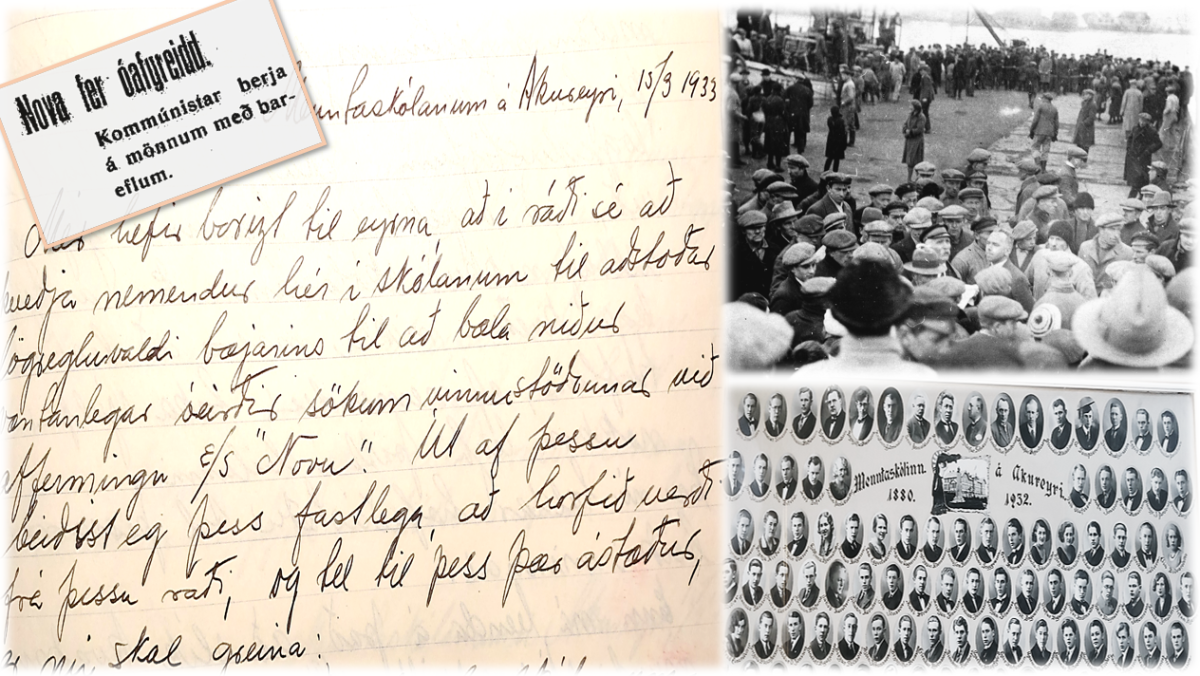 Nova fer óafgreidd.
Kommúnistar berja
á mönnum með bar-
eflum.
Menntaskólanum á Akureyri, 15/3 1933
Mér hefir borizt til eyrna, að í ráði sé að
kveðja nemendur hér í skólanum til aðstoðar
lögregluvaldi bæjarins til að bæla niður
væntanlegar óeirðir sökum vinnustöðvunar við
affermingu E/S "Novu". Út af þessu
beiðist eg þess fastlega, að horfið verði
frá þessu ráði, og tel til þess þær ástæður,
er nú skal greina:
Menntaskólinn á Akureyri.
1880. 1932.